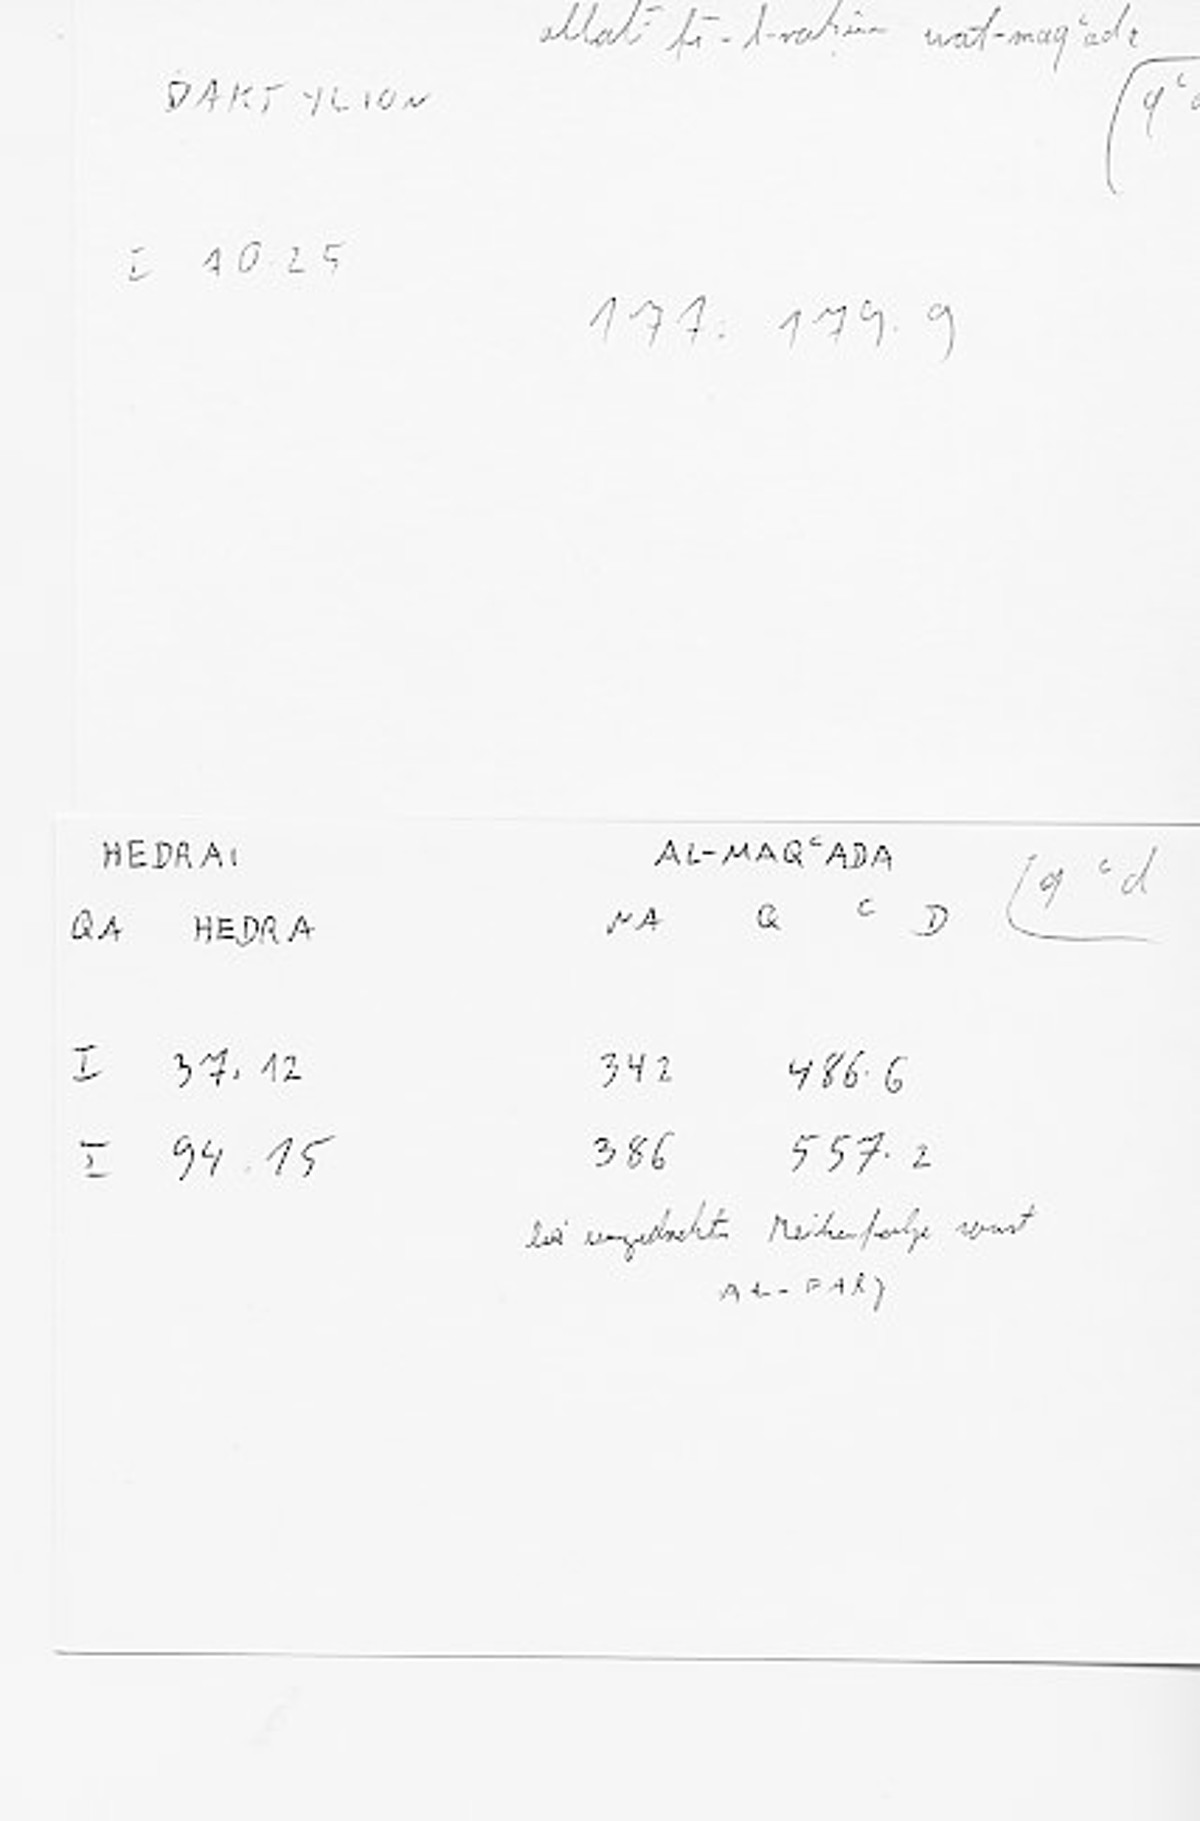 allatī fī-l-raḥim wal-maqʿada
DAKTYLION
(qʿ
I 10.25
177. 179.9
HEDRAI AL-MAQʿADA [qʿd
QA HEDRA NA Q ʿ D
I 37.12 342 486.6
I 94.15 386 557.2
bei umgedrehter Reihenfolge sonst
AL-FARJ